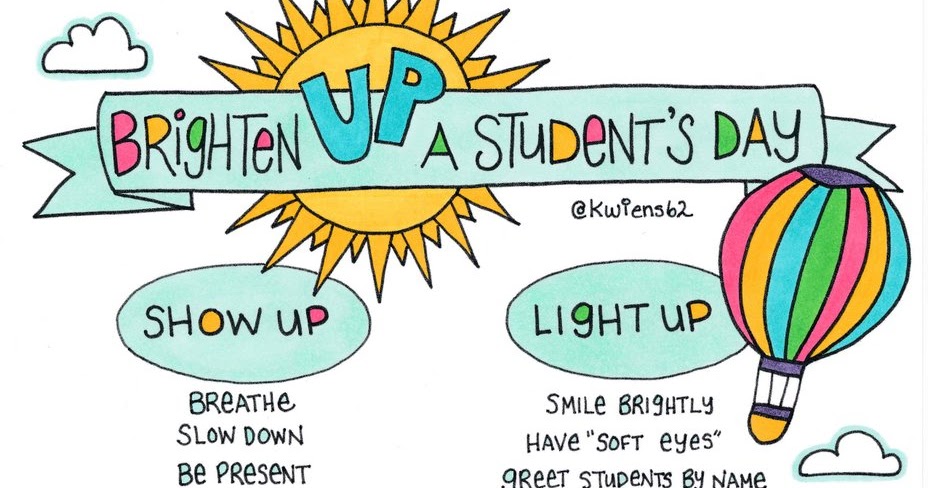 BRIGHTEN UP A STUDENT'S DAY
@Kwiens62
SHOW UP
BREATHE
SLOW DOWN
BE PRESENT
LIGHT UP
SMILE BRIGHTLY
HAVE "SOFT EYES"
GREET STUDENTS BY NAME